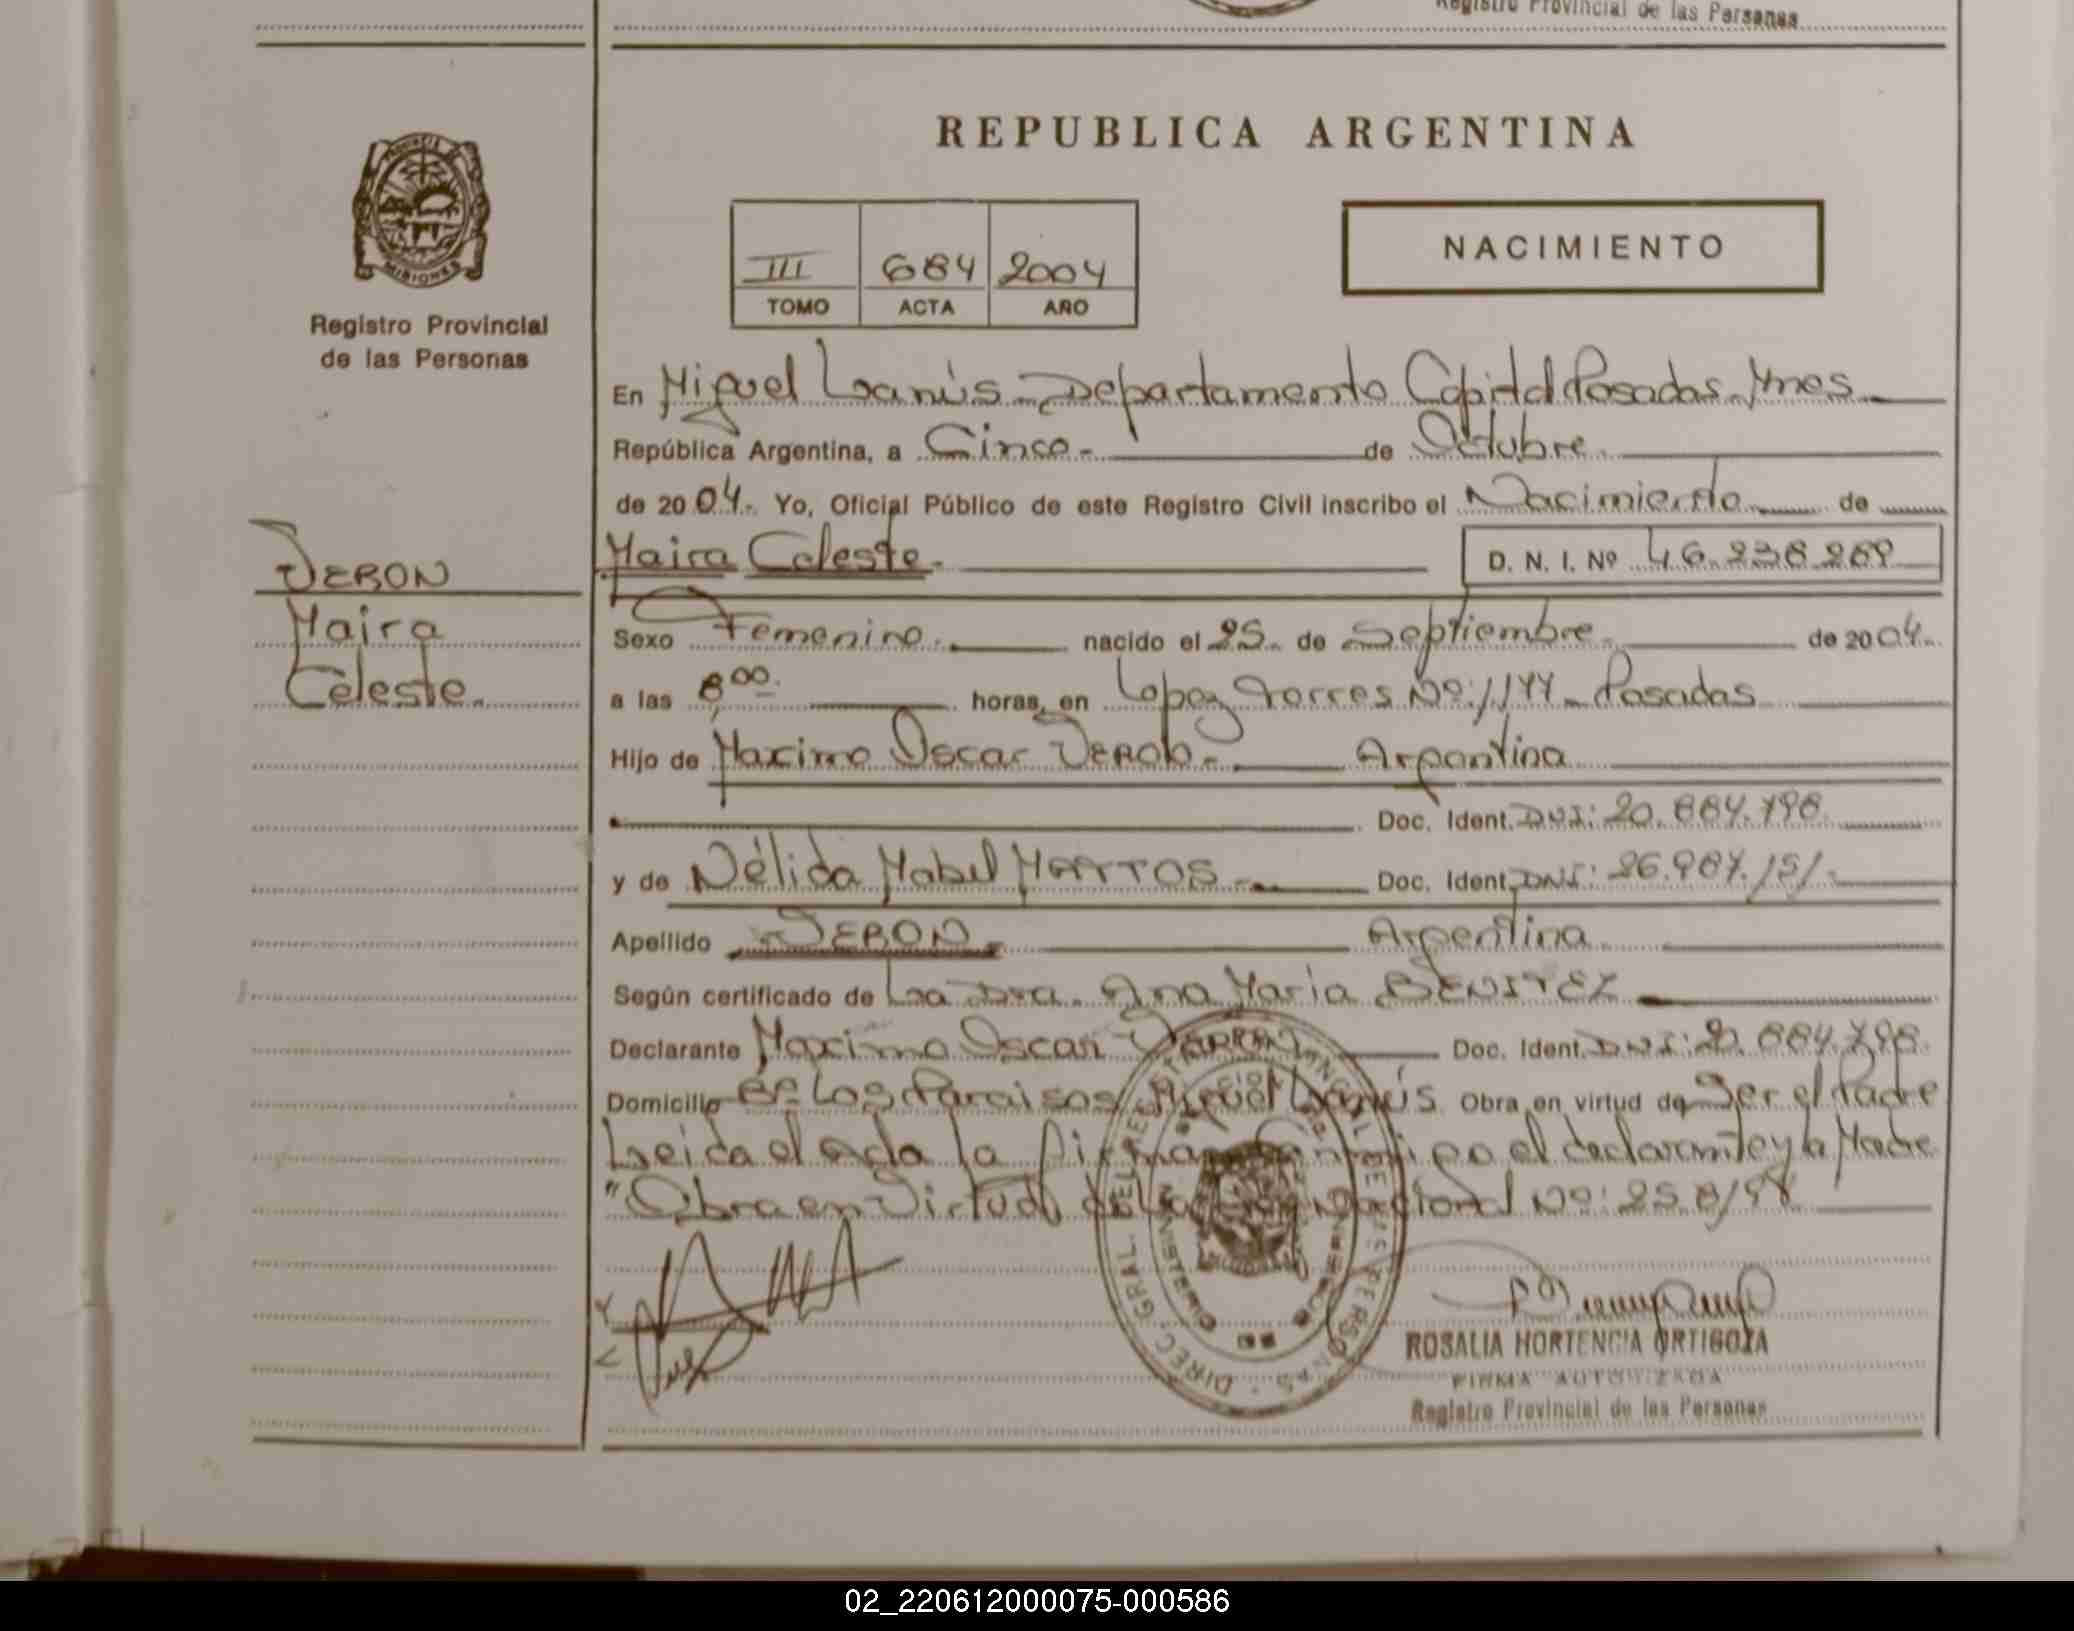 Registro Provincial de las Personas
REPUBLICA ARGENTINA
PROVINCIA DE MISIONES
Registro Provincial
de las Personas
III 684 2004
TOMO ACTA AÑO
NACIMIENTO
VERON
Maira
Celeste.
En Miguel Lanús - Departamento Capital Posadas, Mnes
República Argentina, a Cinco - de Octubre
de 2004. Yo, Oficial Público de este Registro Civil inscribo el Nacimiento de
Maira Celeste. D. N. I. Nº 46.238.289
Sexo Femenino. nacido el 25 de Septiembre de 2004.
a las 8,00. horas, en Lopez Torres Nº: 1177 - Posadas
Hijo de Maximo Oscar VERON - Argentina
Doc. Ident. DNI: 20.884.798.
y de Nélida Mabel MATTOS - Doc. Ident. DNI: 26.987.151 -
Apellido VERON. Argentina
Según certificado de La Dra. Ana Maria BENITEZ
Declarante Maximo Oscar VERON Doc. Ident. DNI: 20.884.798.
Domicilio Bº Los Paraisos, Miguel Lanús Obra en virtud de Ser el Padre
Leida el acta la firman conmigo el declarante y la Madre
"Obra en Virtud de la Ley Nacional Nº: 258/98
DIREC. GRAL. DEL REG. PROVINCIAL DE LAS PERSONAS
ROSALIA HORTENCIA ORTIGOZA
FIRMA AUTORIZADA
Registro Provincial de las Personas
02_220612000075-000586